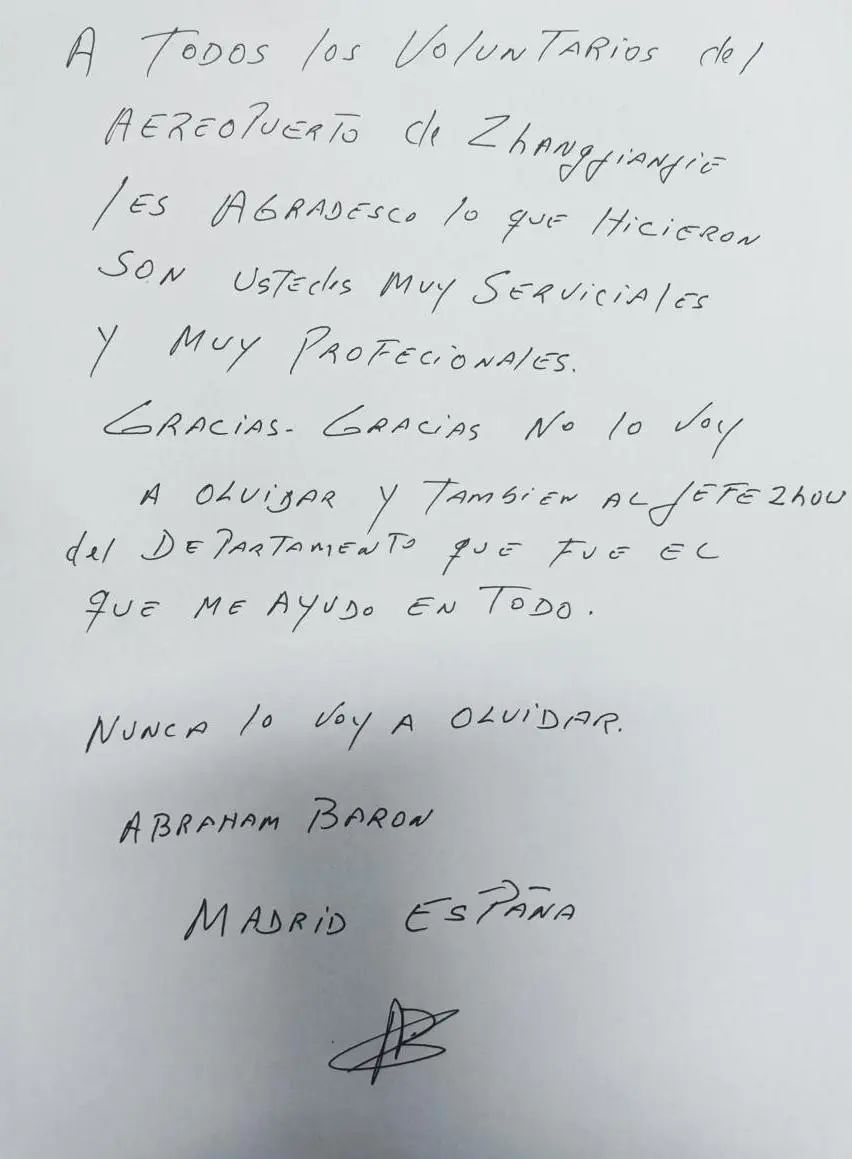 A TODOS los VOlUNTARiOS del
AEREOPUERTO de ZhANgjiANjiE
lES AGRADESCO lo qUE HiCiERON
SON USTEdes MUY SERViCiAlES
Y MUY PROFECiONAlES.
GRACiAS- GRACiAS No lo VOY
A OLVIDAR Y TAMBiEN AL JEFE Zhou
del DEPARTAMENTO qUE FUE EL
qUE ME AYUDO EN TODO.
NUNCA lo VOY A OLViDAR.
ABRAHAM BARON
MADRiD ESPAÑA